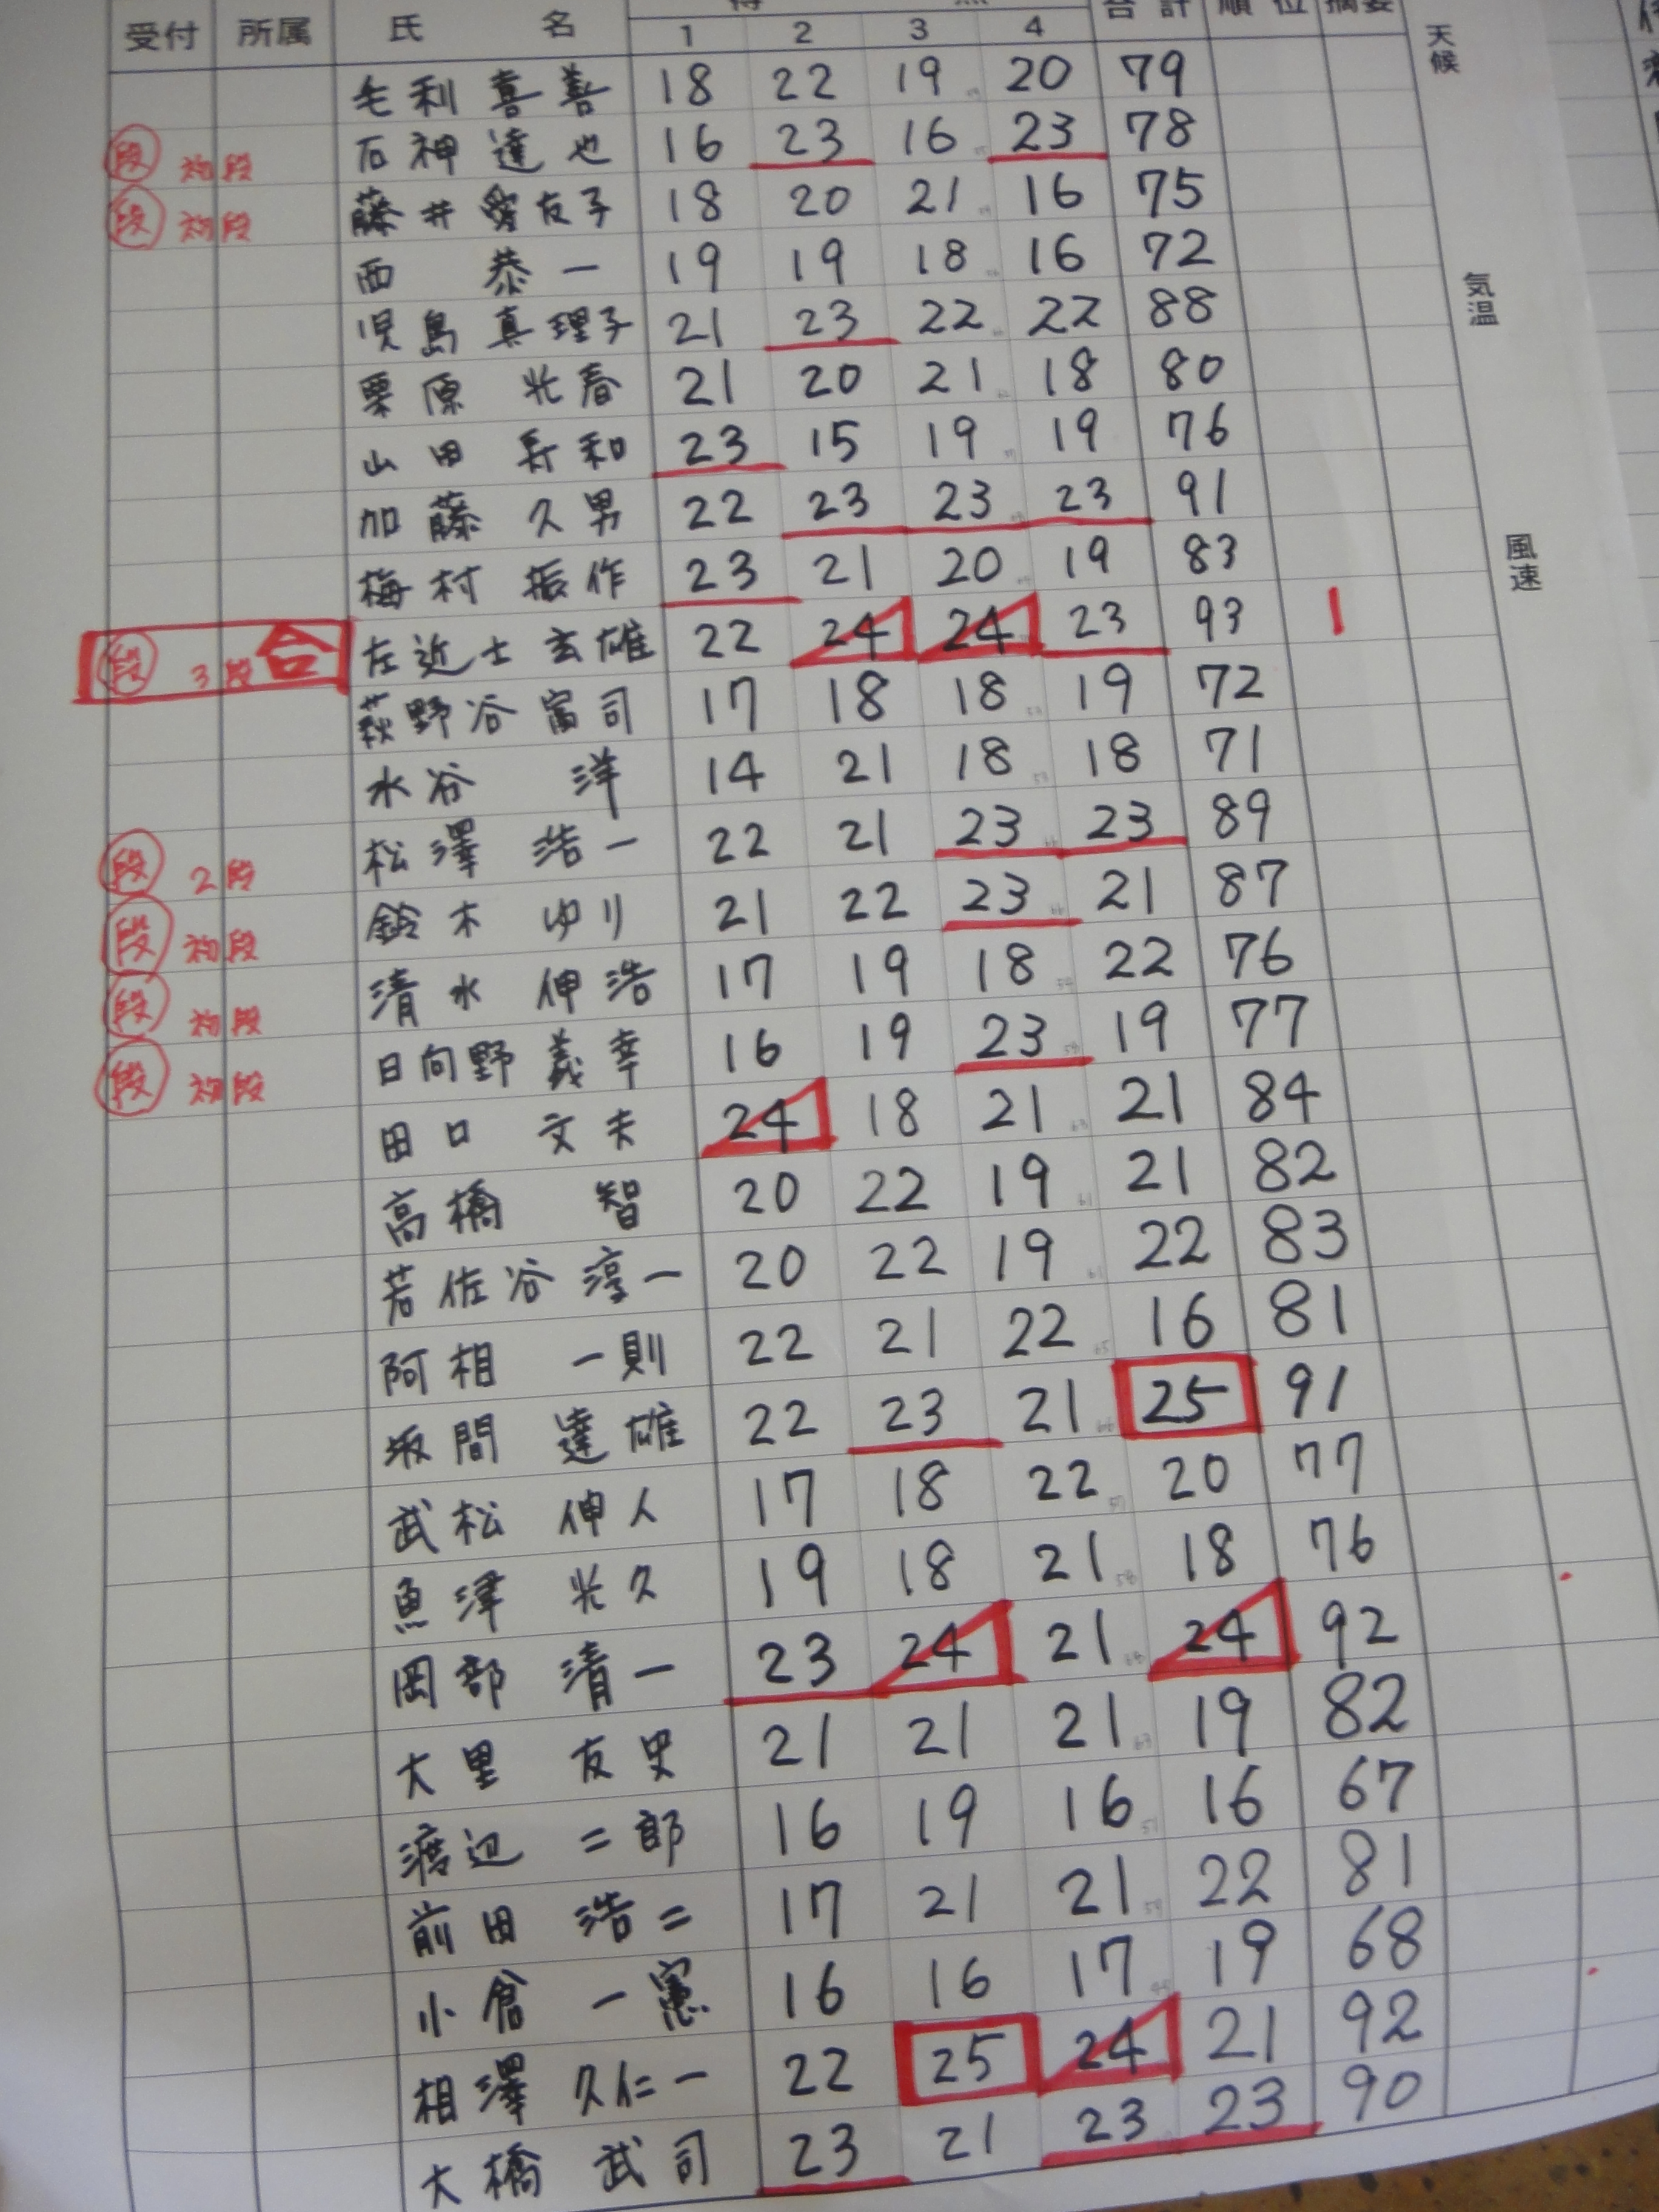 受付 所属 氏 名 1 2 3 4 合計 順位 摘要
毛利 喜善 18 22 19 20 79
段 初段 石神 達也 16 23 16 23 78
段 初段 藤井 愛友子 18 20 21 16 75
西 恭一 19 19 18 16 72
児島 真理子 21 23 22 22 88
栗原 光春 21 20 21 18 80
山田 寿和 23 15 19 19 76
加藤 久男 22 23 23 23 91
梅村 振作 23 21 20 19 83
段 3段 合 左近士 玄雄 22 24 24 23 93 1
萩野谷 富司 17 18 18 19 72
水谷 洋 14 21 18 18 71
段 2段 松澤 浩一 22 21 23 23 89
段 初段 鈴木 ゆり 21 22 23 21 87
段 初段 清水 伸浩 17 19 18 22 76
段 初段 日向野 義幸 16 19 23 19 77
田口 文夫 24 18 21 21 84
高橋 智 20 22 19 21 82
若佐谷 淳一 20 22 19 22 83
阿相 一則 22 21 22 16 81
坂間 達雄 22 23 21 25 91
武松 伸人 17 18 22 20 77
魚津 光久 19 18 21 18 76
岡部 清一 23 24 21 24 92
大里 友史 21 21 21 19 82
渡辺 二郎 16 19 16 16 67
前田 浩二 17 21 21 22 81
小倉 一憲 16 16 17 19 68
相澤 久仁一 22 25 24 21 92
大橋 武司 23 21 23 23 90
天候
気温
風速